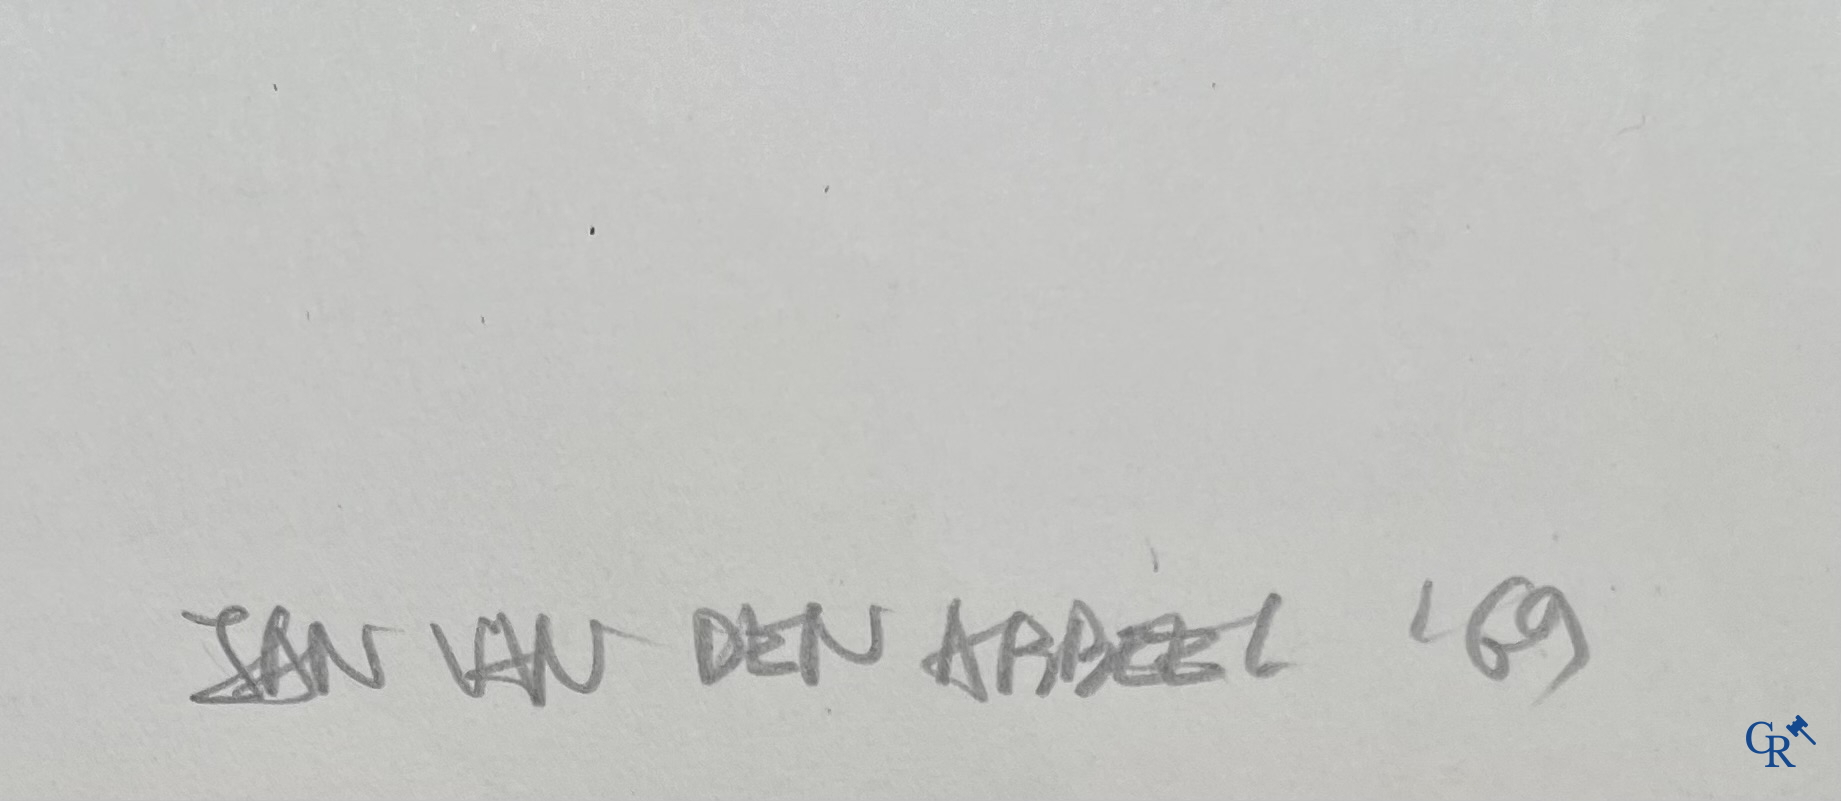 JAN VAN DEN ABBEEL '69
CR